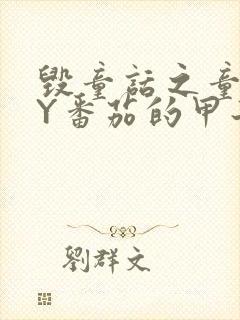 毁童话之童
Y番茄的甲
劉群文